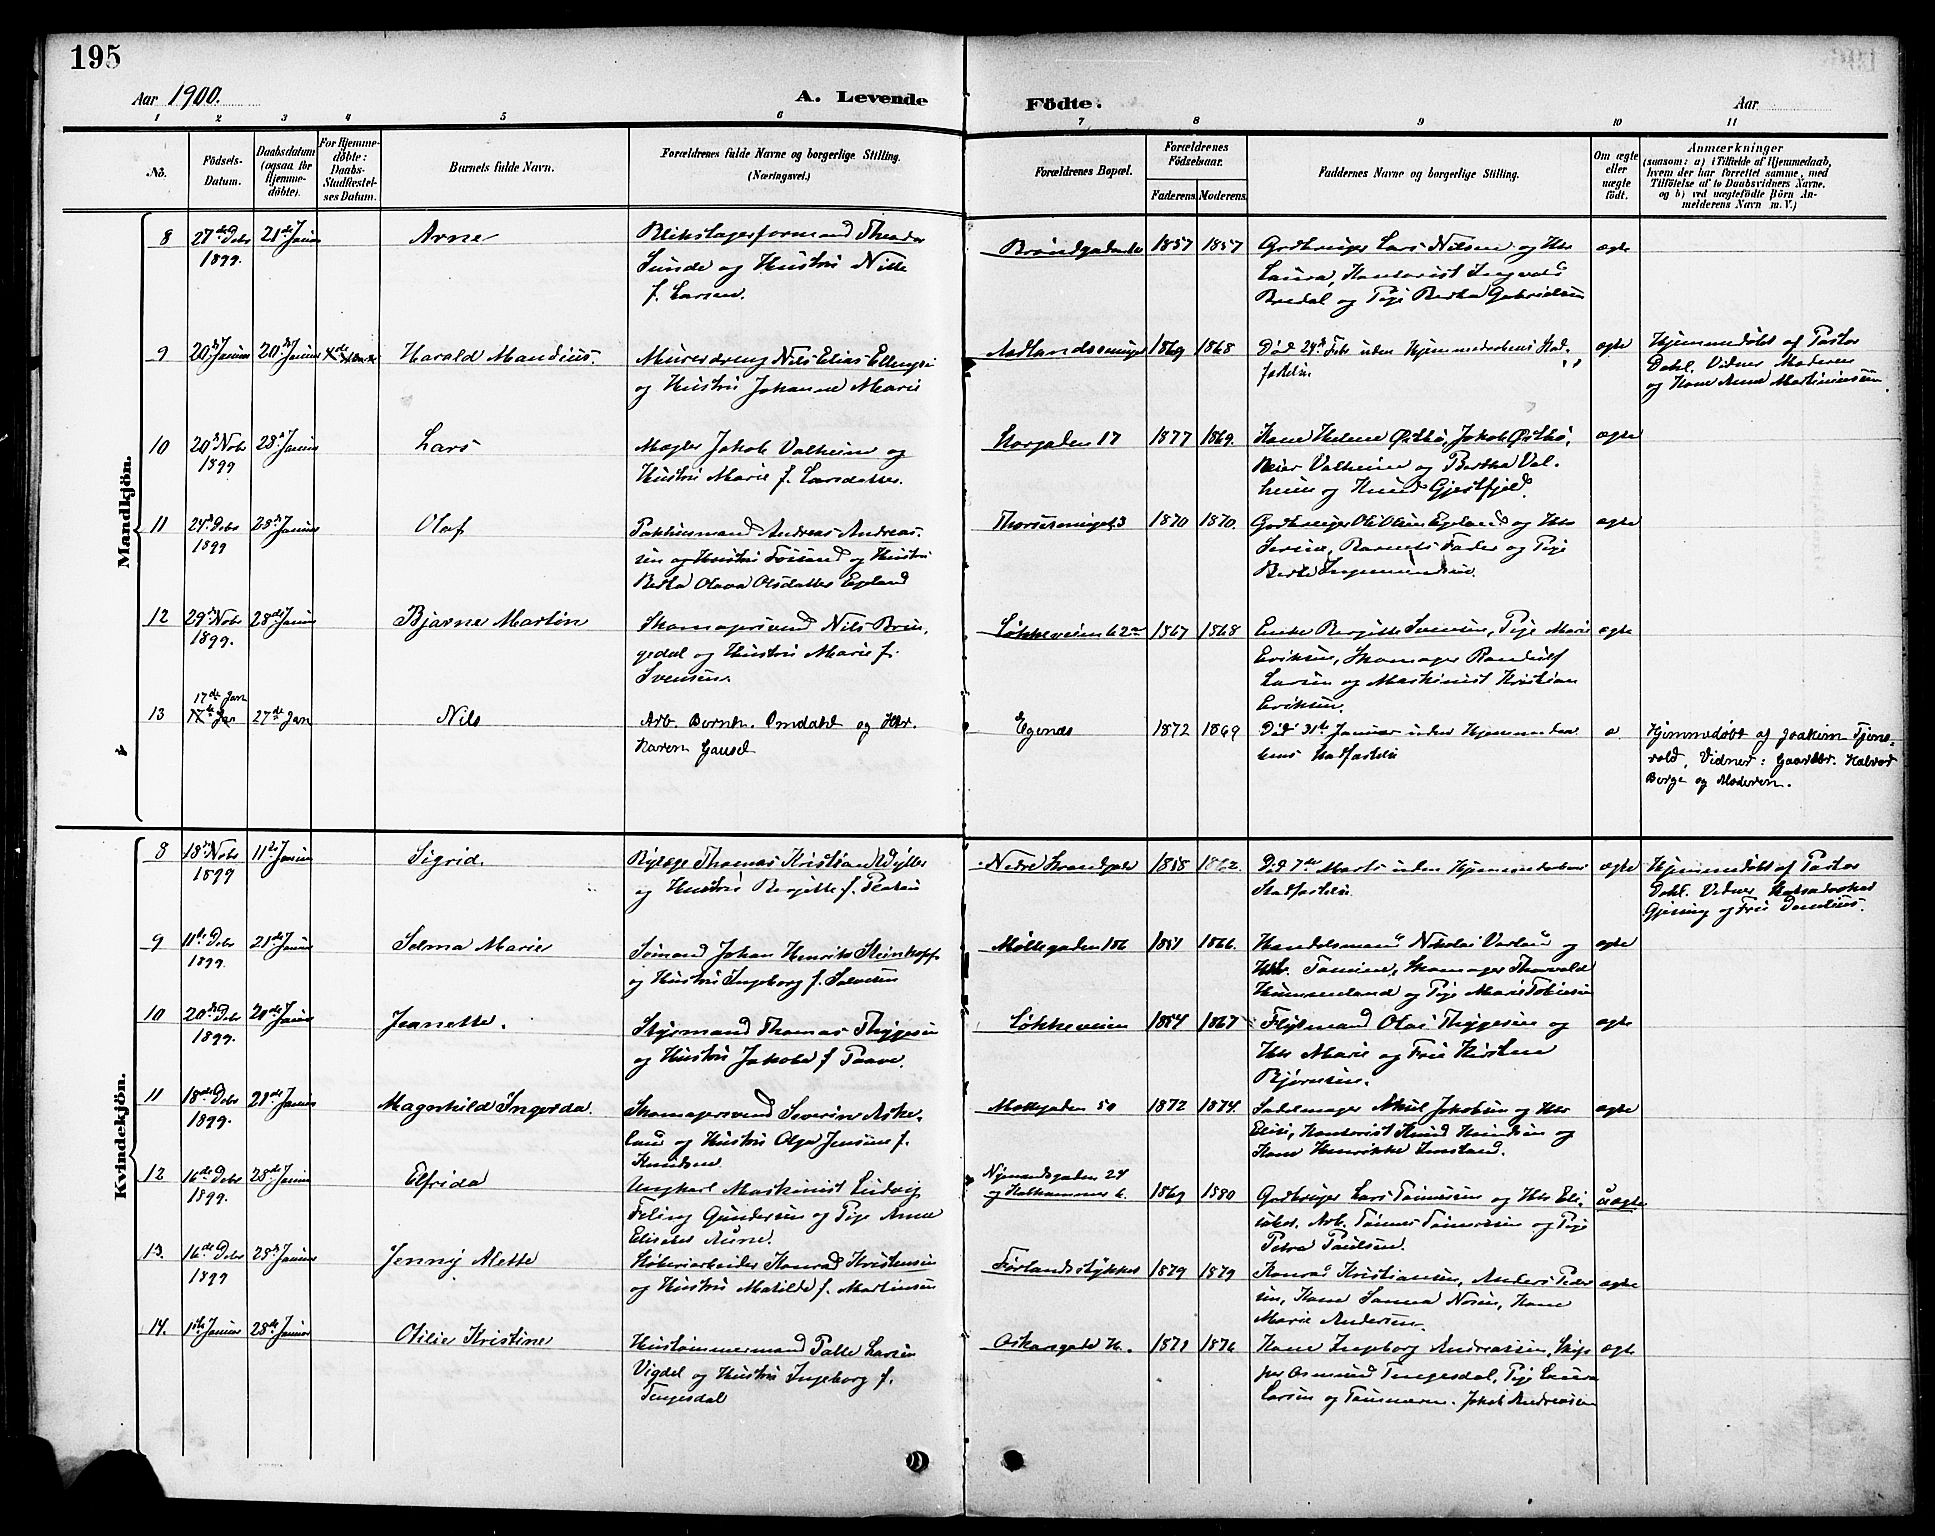 195
Aar 1900.
A. Levende Födte.
Aar
1 2 3 4 5 6 7 8 9 10 11
No.
Födsels-Datum.
Daabsdatum (ogsaa for Hjemme-döbte).
For Hjemme-döbte: Daabs-Stadfæstel-ses Datum.
Barnets fulde Navn.
Forældrenes fulde Navne og borgerlige Stilling. (Næringsvei.)
Forældrenes Bopæl.
Forældrenes Födselsaar.
Faderens. Moderens.
Faddernes Navne og borgerlige Stilling.
Om ægte eller uægte födt.
Anmærkninger
(saasom: a) i Tilfælde af Hjemmedaab,
hvem der har forrettet samme, med
Tilföielse af to Daabsvidners Navne,
og b) ved uægtefödte Börn An-
melderens Navn m. V.)
Mandkjön.
8 27de Debr 1899. 21de Januar
Arne
Blikslagerformand Theodor
Sunde og Hustru Nille
f. Larsen.
Brøndgaden 1857 1857
Gaardbruger Lars Nilsen og Htr
Laura, Kontorist Ingvald
Bredal og Pige Bertha Gabrielsen
ægte
9 20de Januar 20de Januar
Harald Mandius.
Murerdreng Nils Elias Ellingsen
og Hustru Johanne Marie
1869 1868
Død 24de Febr uden Hjemmedaabens Stad-
fæstelse.
ægte
Hjemmedøbt af Pastor
Dahl. Vidner Moderen
og Kone Anne Martiniussen.
10 20de Nobr 1899 28de Januar
Lars
Mægler Jakob Valheim og
Hustru Marie f. Larsdatter.
Storgaden 17 1877 1869.
Kone Helene Østbø, Jakob Østbø,
Peier Valheim og Bertha Val-
heim og Knud Gjestfjeld.
ægte
11 24de Debr 1899 28de Januar
Olaf
Pakhusmand Andreas Andreas-
sen og Hustru
Berta Olava Olsdatter Egeland
1870 1870.
Gaardbruger Ole Olsen Egeland og Htr
Serine, Barnets Fader og Pige
Berte Ingemundsen.
ægte
12 29de Nobr 1899. 28de Januar
Bjarne Martin
Skomagersvend Nils Brin-
gedal og Hustru Marie f.
Svensen.
Løkkeveien 62a 1867 1868
Enke Bergitte Svensen, Pige Marie
Eriksen, Skomager Randulf
Larsen og Maskinist Kristian
Eriksen.
ægte
13 17de Jan 27de Jan
Nils
Arb. Berntn. Omdahl og Htr.
Karen Gausel
Egenæs 1872 1869
Død 31te Januar uden Hjemmedaa-
bens Stadfæstelse
Hjemmedøbt af Joakim Tjens-
vold, Vidner: Gaardbr. Halvor
Berge og Moderen.
Kvindekjön.
8 18de Nobr 1899 11te Januar
Sigrid.
Thomas Kristian Wyller
og Hustru Bergitte f.
Nedre Strandgade 1858 1862.
Død 7de Marts uden Hjemmedaabens
Stadfæstelse.
ægte
Hjemmedøbt af Pastor
Dahl. Vidner
og Frk
9 11te Debr 1899. 21de Januar
Selma Marie
Sømand Johan Henrik Steinkopf
og Hustru Ingeborg f. Salvesen
Møllegaden 1851 1866.
Handelsmand Nikolai Varland og
Htr. Tomine, Skomager Thorvald
Hummenland og Pige Marie Tobiesen
ægte
10 20de Debr 1899. 20de Januar
Jeanette.
Styrmand Thomas Thygesen
og Hustru Jakobe f. Paave.
Løkkeveien 1854 1867
Olai Thygesen og
Htr Marie og Frk Kirstine
Bjørnsen.
ægte
11 18de Debr 1899. 21de Januar
Magnhild Ingerda.
Skomagersvend Severin Aske-
land og Hustru Olga Jensine f.
Knudsen
Møllegaden 50 1872 1874.
Sadelmager Aksel Jakobsen og Htr
Elise, Kontorist Knud Knudsen og
Kone Henrikke Imsland.
ægte
12 16de Debr 1899. 28de Januar
Elfrida
Ungkarl Maskinist Ludvig
Feling Gundersen og Pige Anna
Elisabet Aune.
Nymandsgaden 24
og 1869 1880
Gaardbruger Lars Tønnessen og Htr Eli-
sabet. Arb. Tønnes Tønnessen og Pige
Petra Paulsen.
uægte
13. 16de Debr 1899 28de Januar
Jenny Alette
Støberiarbeider Konrad Kristensen
og Hustru Matilde f. Martinsen
Førlandsstykket 1879 1879
Konrad Kristiansen, Anders Peder-
sen, Kone Sanna Nosen, Kone
Marie Andersen.
ægte
14. 1ste Januar 28de Januar
Otilie Kristine
Hustømmermand Palle Larsen
Vigdel og Hustru Ingeborg f.
Tengesdal
Oskarsgade 1871 1876
Kone Ingeborg Andreassen, Skip-
per Osmund Tengesdal, Pige Laura
Larsen og Tømmerm. Jakob Andreasen
ægte